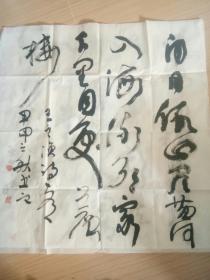 白日依山尽黄河
入海流欲穷
千里目更上一层
楼
王之涣诗
甲申之秋